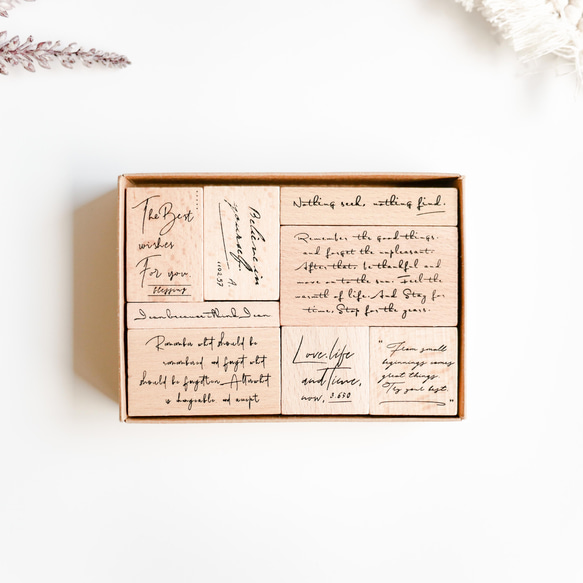 The Best
wishes
For you.
blessing
Believe in
yourself.
A.
1102.57
Nothing seek, nothing find.
Remember the good things.
and forget the unpleasant.
After that, be thankful and
move on to the sun. Feel the
warmth of life. And Stay for
time, Stop for the years.
I can because I think I can
Remember what should be
remembered, and forget what
should be forgotten. Alter what
is changeable, and accept
Love.life
and Time,
now, 3.630
"From small
beginnings comes
great things.
Try your best.
"